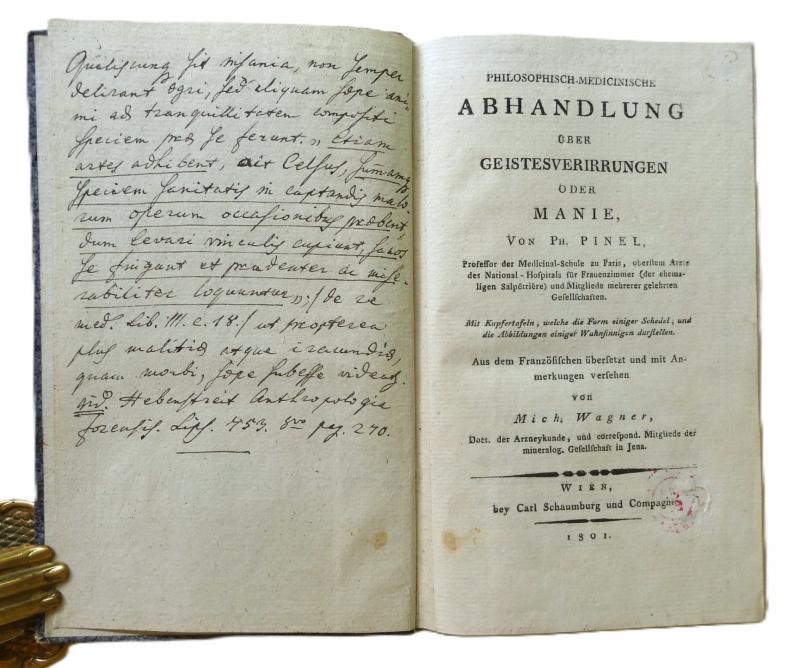 Qualiscunq sit insania, non semper
delirant ægri, sed aliquam sæpe ani-
mi ad tranquillitatem compositi
speciem præ se ferunt. „ etiam
artes adhibent, ait Celsus, summamq
speciem sanitatis in captandis malo
rum operum occasionibus præbent,
dum levari vinculis cupiunt, sanos
se fingunt et prudenter ac mise-
rabiliter loquuntur „: / de re
med. Lib. III. c. 18. / ut propterea
plus malitiæ atque iracundiæ,
quam morbi, sæpe subesse videatz.
vid. Hebenstreit Anthropologia
forensis. Lips. 753. 8vo pag. 270.
PHILOSOPHISCH-MEDICINISCHE
ABHANDLUNG
ÜBER
GEISTESVERIRRUNGEN
ODER
MANIE,
VON PH. PINEL,
Profeſſor der Medicinal-Schule zu Paris, oberſtem Arzte
des National-Hoſpitals für Frauenzimmer (der ehema-
ligen Salpêtrière) und Mitgliede mehrerer gelehrten
Geſellſchaften.
Mit Kupfertafeln, welche die Form einiger Schedel, und
die Abbildungen einiger Wahnſinnigen darſtellen.
Aus dem Franzöſiſchen überſetzt und mit An-
merkungen verſehen
VON
Mich. Wagner,
Doct. der Arzneykunde, und correſpond. Mitgliede der
mineralog. Geſellſchaft in Jena.
WIEN,
bey Carl Schaumburg und Compagnie
1801.